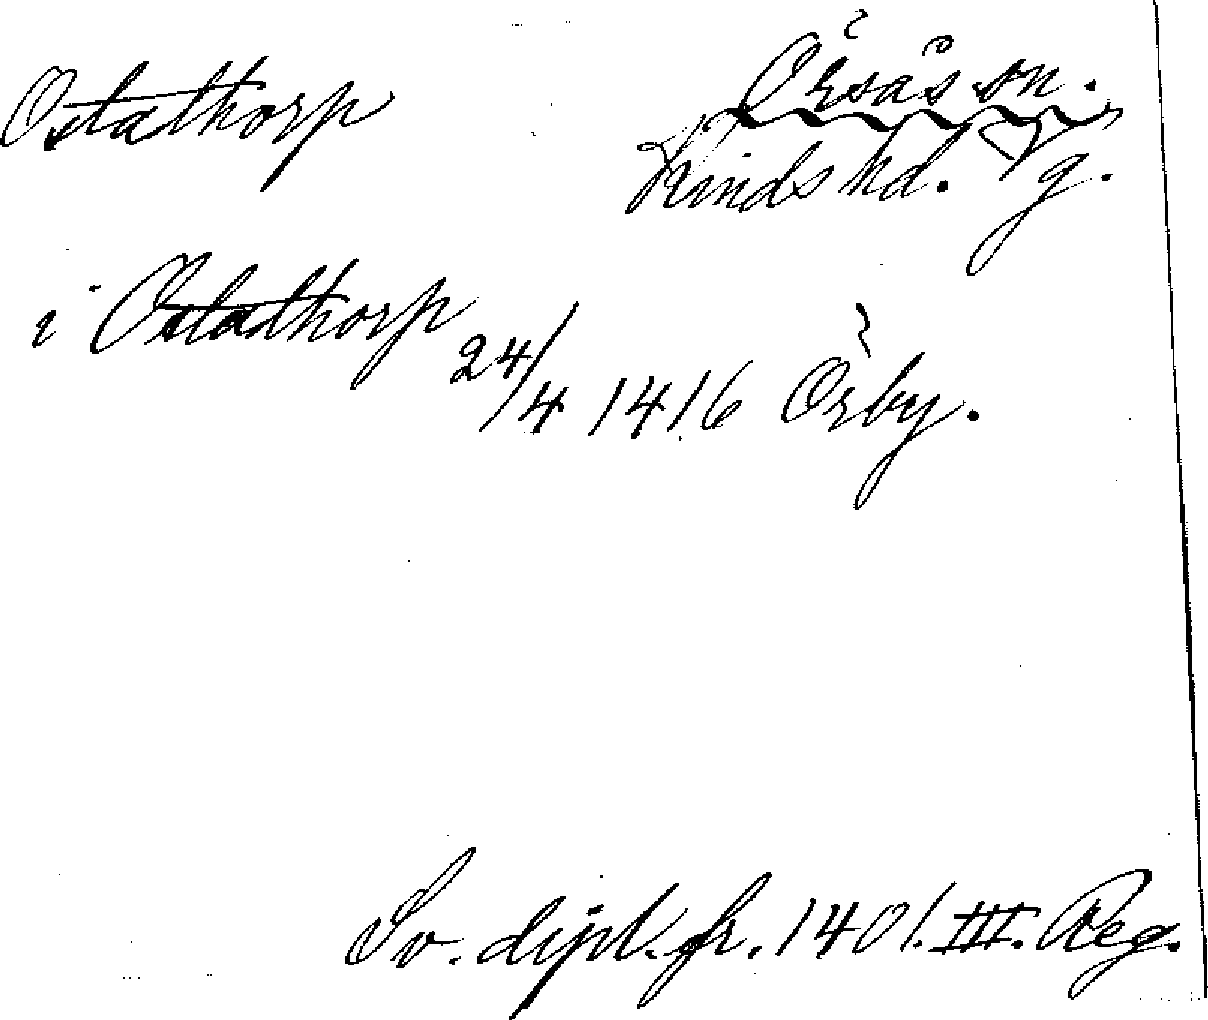 Ostathorp Örsås sn.
Kinds hd. Vg.
i Ostathorp 24/4 1416 Örby.
Sv. dipl. fr. 1401. III. Reg.